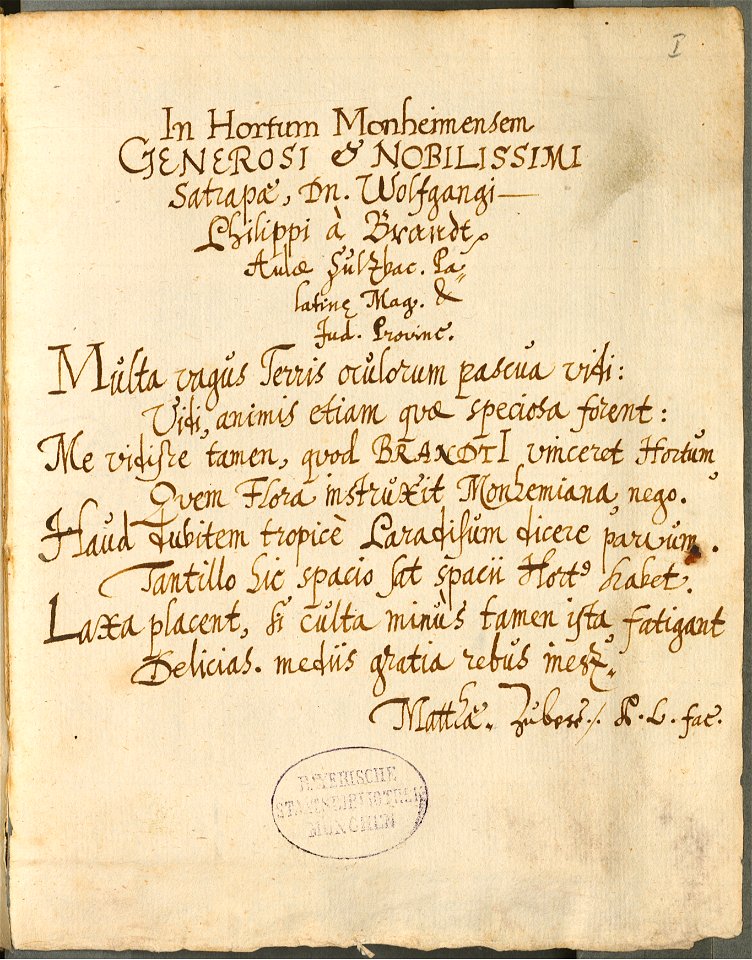 I
In Hortum Monheimensem
GENEROSI & NOBILISSIMI
Satrapæ, Dn. Wolfgangi
Philippi à Brandt,
Aulæ Sultzbac. Pa-
latinę Mag. &
Jud. Provinc.
Multa vagus Terris oculorum pascua vidi:
Vidi, animis etiam quæ speciosa forent:
Me vidisse tamen, quod BRANDTI vinceret Hortum
Quem Flora instruxit Monhemiana nego.
Haud dubitem tropicè Paradisum dicere parvum.
Tantillo hic spacio sat spacii Hort9 habet.
Laxa placent, si culta minùs tamen ista fatigant
Delicias. mediis gratia rebus inest.
Matthæ. Zubers. P. L. fac.
BAYERISCHE
STAATSBIBLIOTHEK
MÜNCHEN